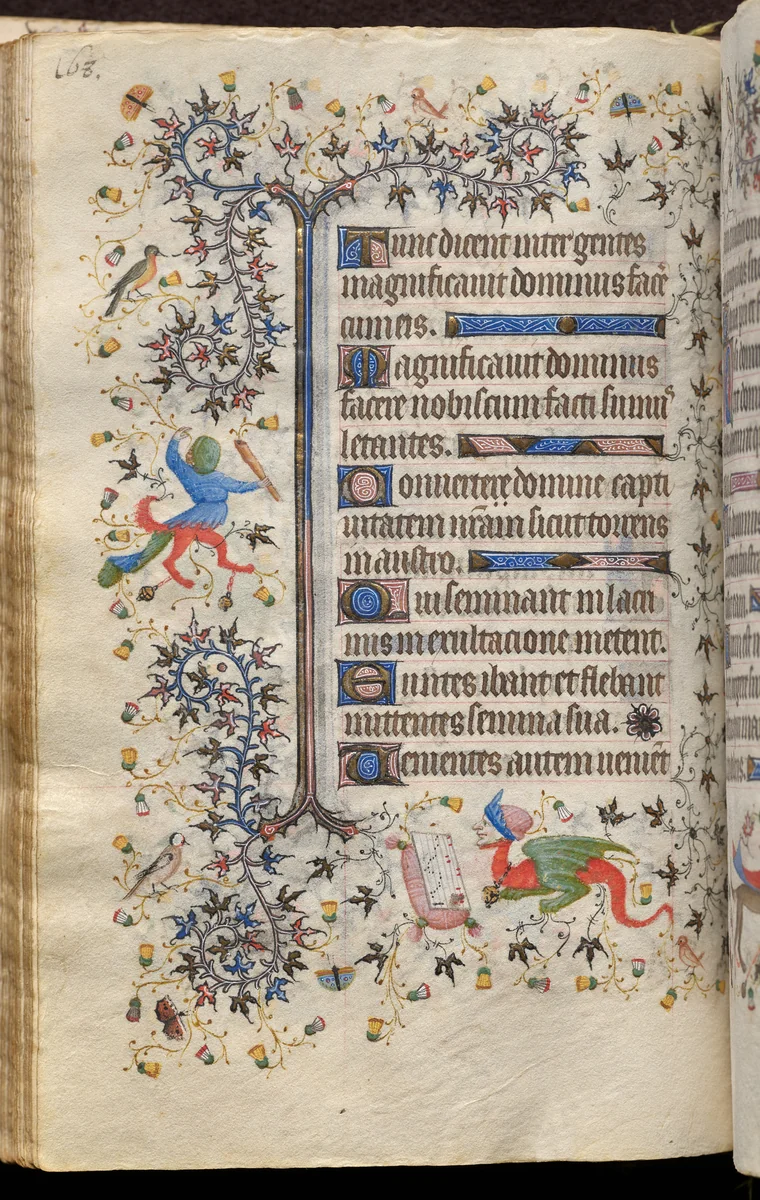 168.
Tunc dicent inter gentes
magnificauit dominus facē
cum eis.
Magnificauit dominus
facere nobiscum facti sumus
letantes.
Conuertere domine capti
uitatem nr̄am sicut torrens
in austro.
Qui seminant in lacri
mis in exultacione metent.
Euntes ibant et flebant
mittentes semina sua.
Uenientes autem ueniēt